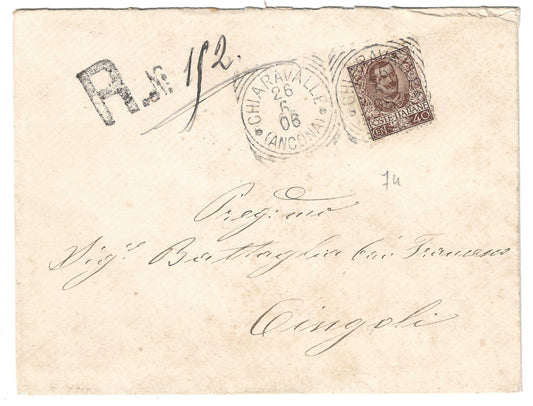 R. No 152.
CHIARAVALLE
26
6
06
(ANCONA)
CHIARAVALLE
POSTE ITALIANE
CENT. 40
74
Pregimo
Sig.r Battaglia Cav Francesco
Cingoli